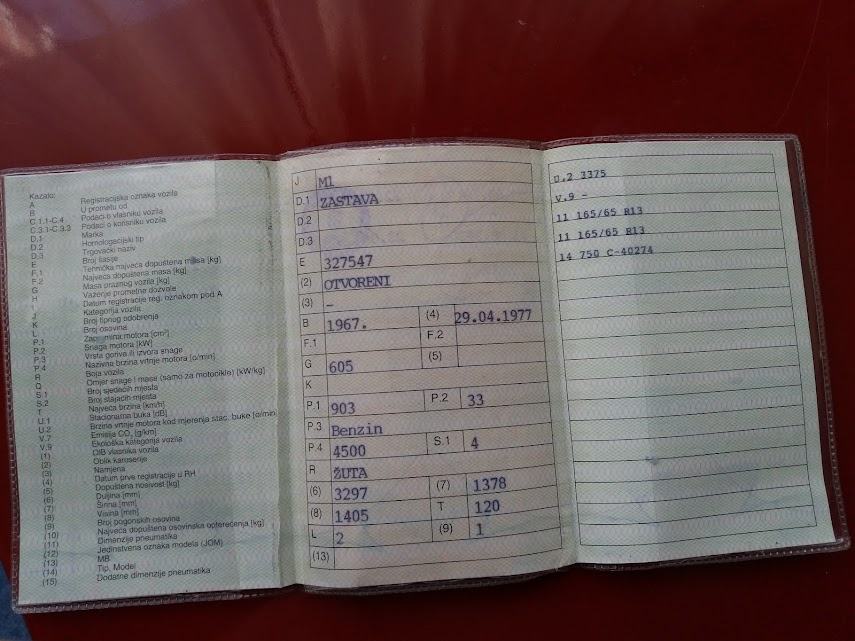 Kazalo:
A Registracijska oznaka vozila
B U prometu od
C.1.1-C.4 Podaci o vlasniku vozila
C.3.1-C.3.3 Podaci o korisniku vozila
D.1 Marka
D.2 Homologacijski tip
D.3 Trgovački naziv
E Broj šasije
F.1 Tehnička najveća dopuštena masa [kg]
F.2 Najveća dopuštena masa [kg]
G Masa praznog vozila [kg]
H Važenje prometne dozvole
I Datum registracije reg. oznakom pod A
J Kategorija vozila
K Broj tipnog odobrenja
L Broj osovina
P.1 Zapremina motora [cm³]
P.2 Snaga motora [kW]
P.3 Vrsta goriva ili izvora snage
P.4 Nazivna brzina vrtnje motora [o/min]
R Boja vozila
Q Omjer snage i mase (samo za motocikle) [kW/kg]
S.1 Broj sjedaćih mjesta
S.2 Broj stajaćih mjesta
T Najveća brzina [km/h]
U.1 Stacionarna buka [dB]
U.2 Brzina vrtnje motora kod mjerenja stac. buke [o/min]
V.7 Emisija CO₂ [g/km]
V.9 Ekološka kategorija vozila
(1) OIB vlasnika vozila
(2) Oblik karoserije
(3) Namjena
(4) Datum prve registracije u RH
(5) Dopuštena nosivost [kg]
(6) Duljina [mm]
(7) Širina [mm]
(8) Visina [mm]
(9) Broj pogonskih osovina
(10) Najveća dopuštena osovinska opterećenja [kg]
(11) Dimenzije pneumatika
(12) Jedinstvena oznaka modela (JOM)
(13) MB
(14) Tip, Model
(15) Dodatne dimenzije pneumatika
J M1
D.1 ZASTAVA
D.2
D.3
E 327547
(2) OTVORENI
(3) -
B 1967. (4) 29.04.1977
F.1 F.2
G 605 (5)
K
P.1 903 P.2 33
P.3 Benzin
P.4 4500 S.1 4
R ŽUTA
(6) 3297 (7) 1378
(8) 1405 T 120
L 2 (9) 1
(13)
D.2 3375
V.9 -
11 165/65 R13
11 165/65 R13
14 750 C-40274